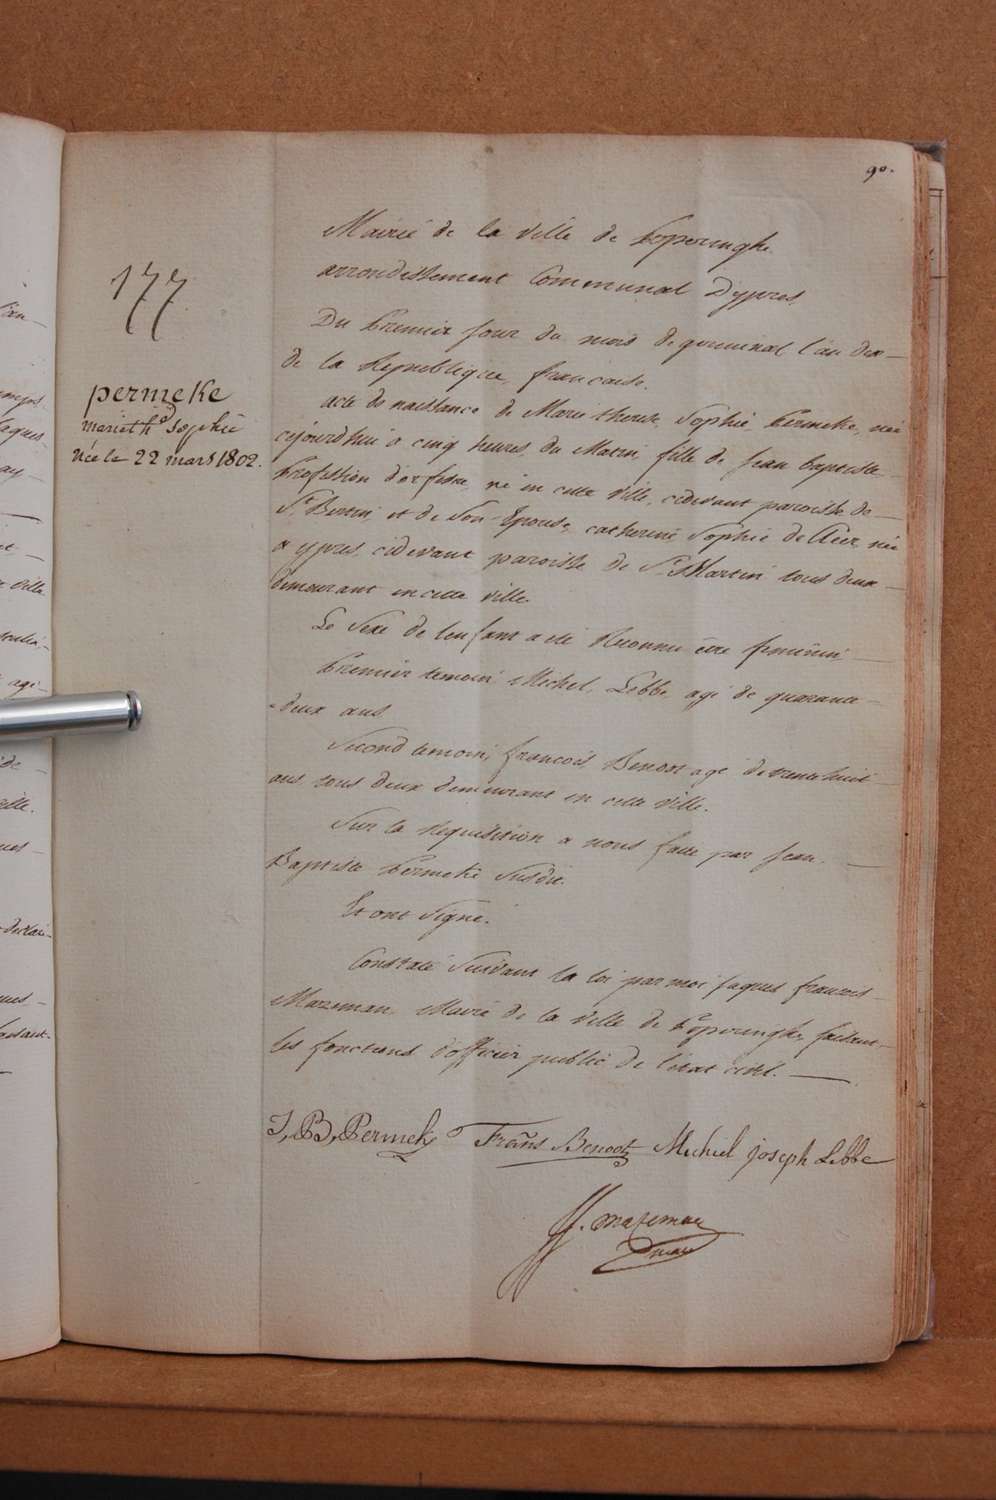 90.
177
permeke
marie th.e Sophie
Née le 22 mars 1802.
Mairie de la Ville de Poperinghe
arrondissement Communal D'ypres,
Du Premier jour du mois de germinal l'an dix
de la Republique française.
acte de naissance de Marie therese, Sophie, Permeke, née
cejourd'hui a cinq heures, du Matin, fille de jean baptiste
Profession d'orfevre, né en cette Ville, cidevant paroisse de
St. Bertin, et de Son Epouse, catherine Sophie de née
a ypres, cidevant paroisse de St. Martin tous deux
demeurant en cette ville.
Le Sexe de l'enfant a été Reconnu être feminin
Premier temoin Michel Lebbe, agé de quarante
deux ans
Second temoin, françois Benoot agé de trente huit
ans, tous deux demeurant en cette Ville.
Sur la Requisition a nous faite par jean
Baptiste Permeke Susdit.
Et ont Signé.
Constaté Suivant la loi par moi jaques françois
Mazeman, Maire de la Ville de Poperinghe, faisant
les fonctions d'officier public de l'état civil.
J, B, Permeke Frañs Benoot Michiel joseph Lebbe
Jf. Mazeman
maire